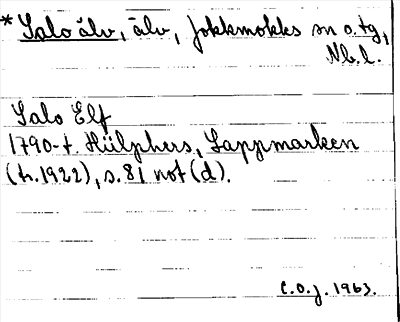 * Salo älv, älv, Jokkmokks sn o. tg,
Nb. l.
Salo Elf
1790-t. Hülphers, Lappmarken
(tr. 1922), s. 81 not (d).
C.O.J. 1963.